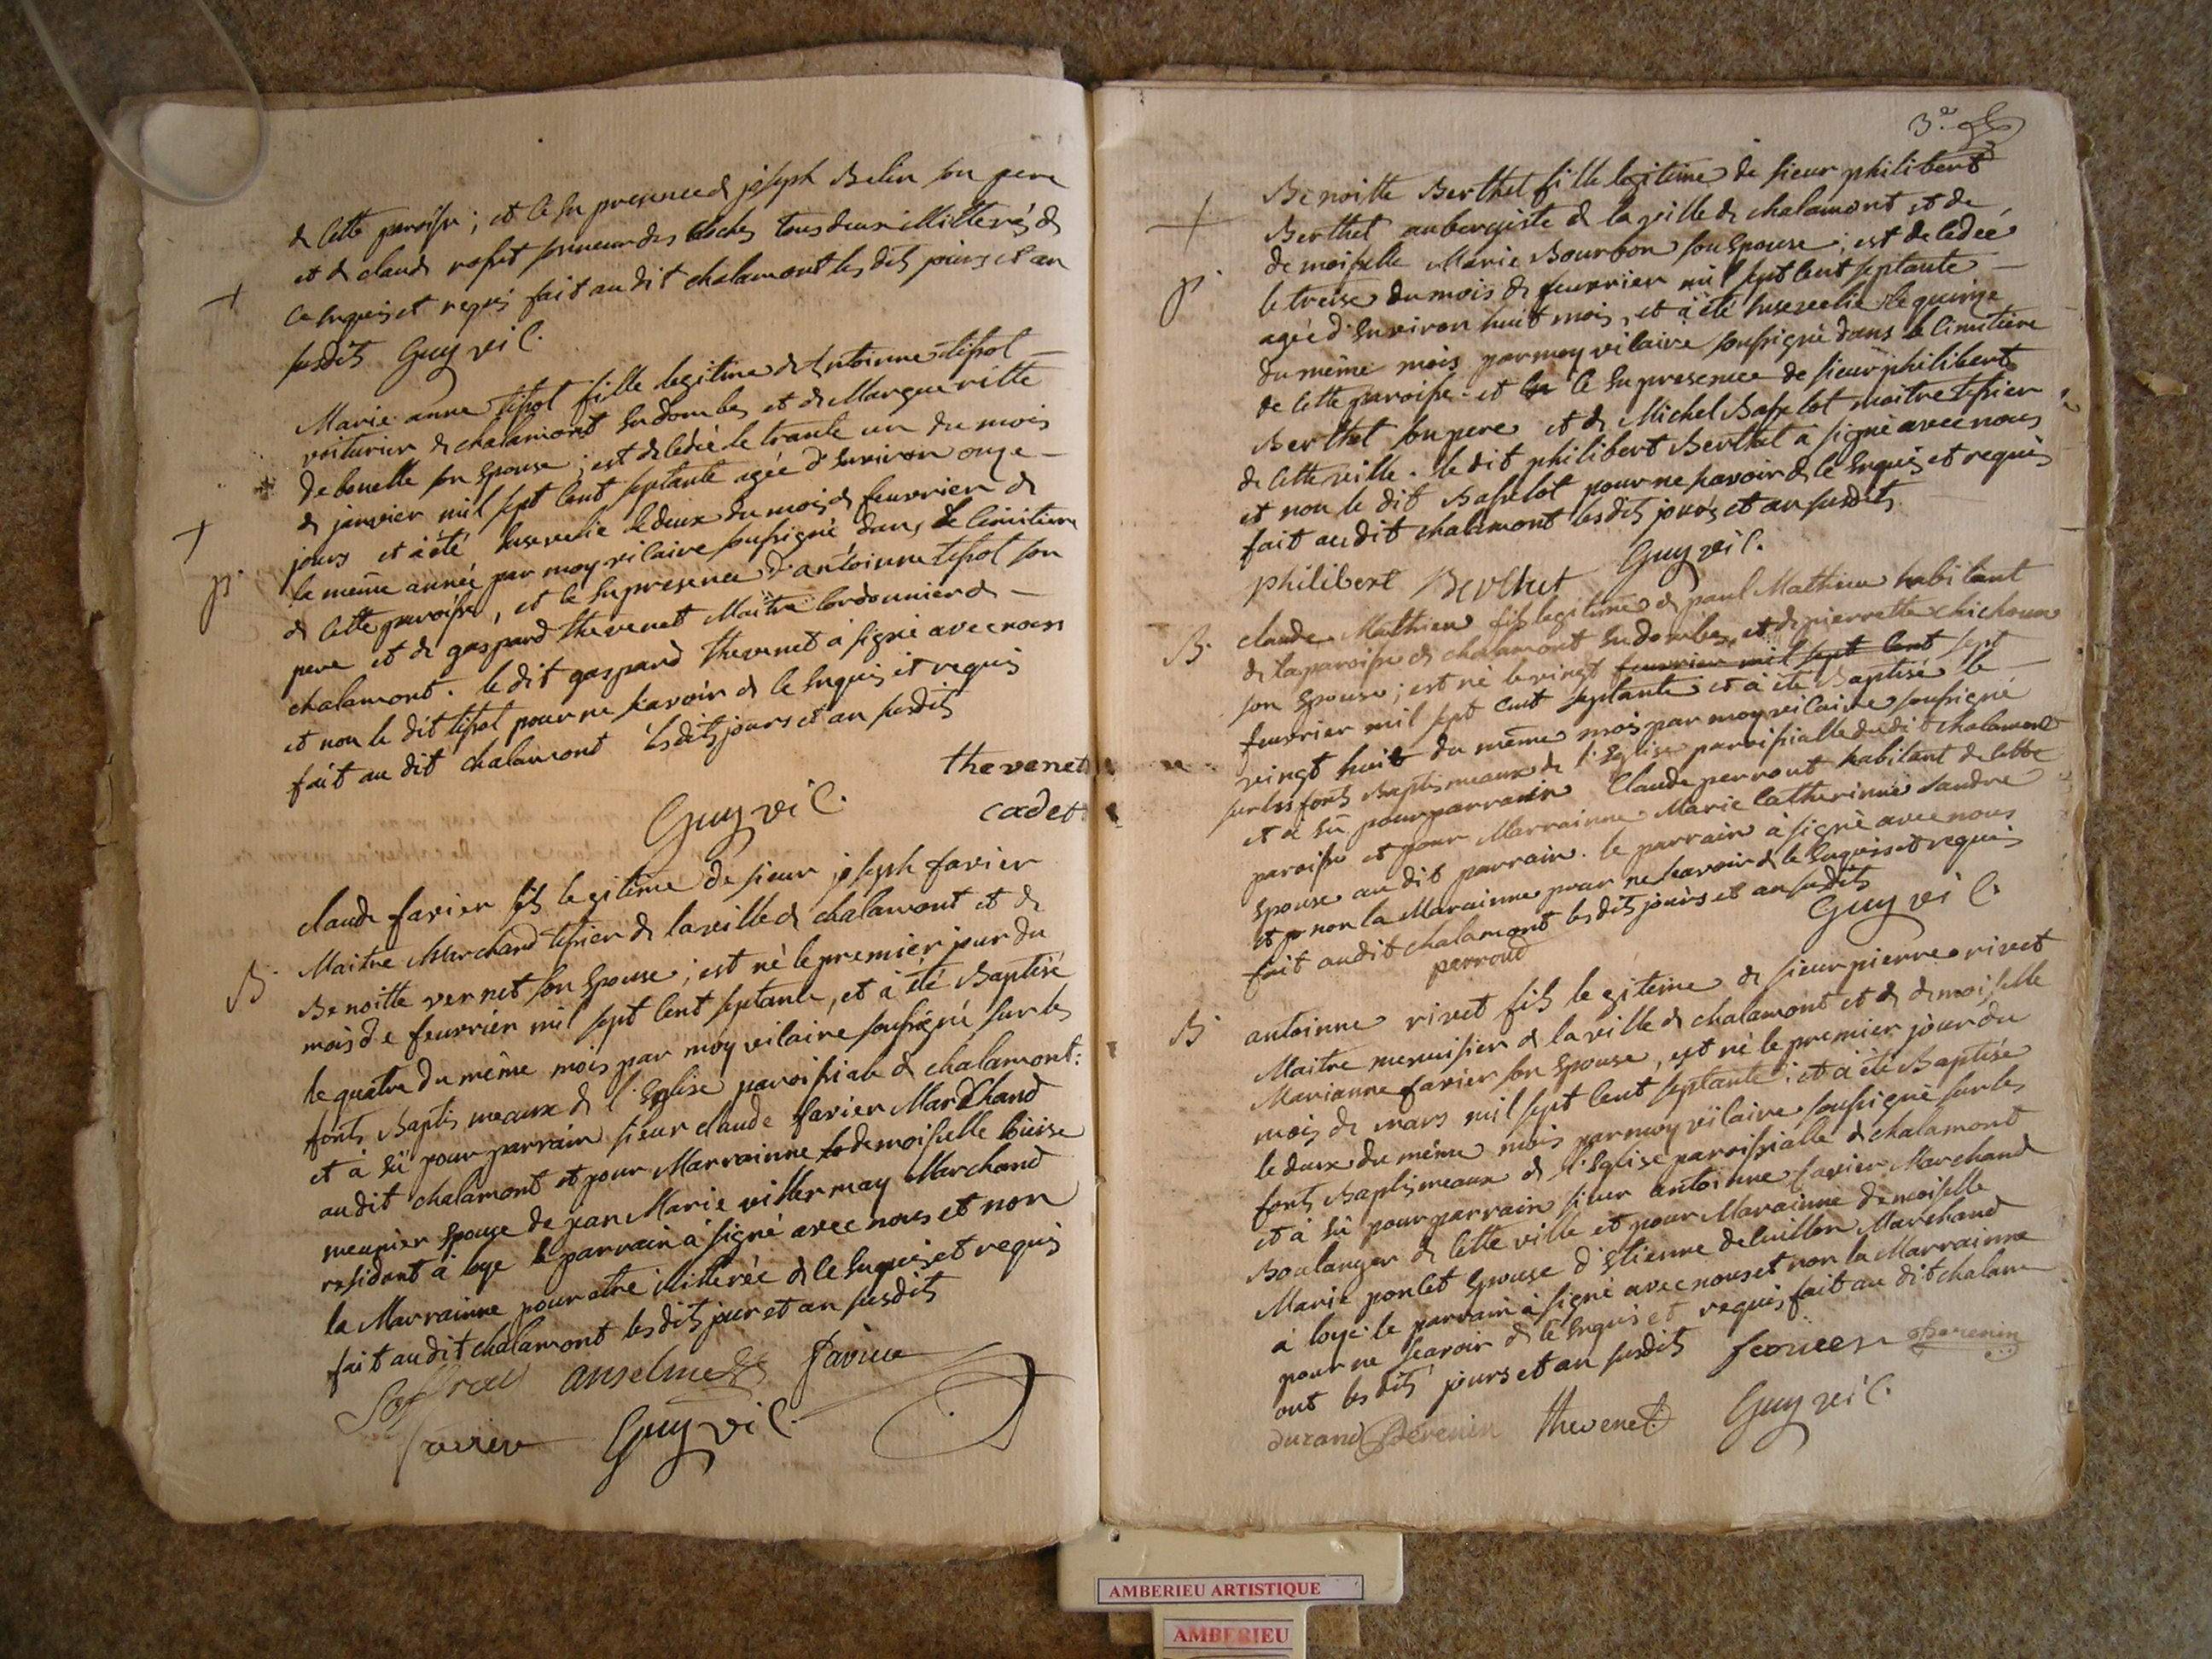 de cette paroisse ; et ce en presence de joseph Belin son pere
et de claude rosset sonneur des cloches tous deux illitterés de
ce enquis et requis fait au dit chalamont les dits jours et an
susdits Guy vic.
Marie anne tissot fille legitime de Antoinne tissot
voiturier de chalamont en dombes et de Margueritte
debenette son epouse ; est decédée le trante un du mois
de janvier mil sept cent septante agée d'environ onze
jours et à été ensevelie le deux du mois de feuvrier de
la meme année par moy vicaire soussigné dans le cimitiere
de cette paroisse, et ce en presence d'antoinne tissot son
pere et de gaspard thevenet Maitre cordonnier de
chalamont. le dit gaspard thevenet à signé avec nous
et non le dit tissot pour ne scavoir de ce enquis et requis
fait au dit chalamont les dits jours et an susdits
thevenet
Guy vic. cadet
B. claude favier fils legitime de sieur joseph favier
Maitre Marchand tissier de la ville de chalamont et de
Benoitte vernet son epouse ; est né le premier jour du
mois de feuvrier mil sept cent septante, et à été Baptisé
le quatre du même mois par moy vicaire soussigné sur les
fonts Baptismeaux de l'Eglise paroissiale de chalamont :
et à eü pour parrain sieur claude favier Marchand
audit chalamont et pour Marrainne demoiselle loüise
meunier epouse de jean Marie villermay Marchand
residant à loye le parrain à signé avec nous et non
la Marrainne pour etre illiterée de ce enquis et requis
fait audit chalamont les dits jour et an susdits
anselme favier
favier Guy vic.
3e.
Benoitte Berthet fille legitime de sieur philibert
Berthet aubergiste de la ville de chalamont et de
demoiselle Marie Bourbon son epouse ; est decedée
le treise du mois de feuvrier mil sept cent septante
agée d'environ huit mois, et à été ensevelie le quinze
du même mois par moy vicaire soussigné dans le cimitiere
de cette paroisse. et ce en presence de sieur philibert
Berthet son pere et de Michel Basselot maitre tissier
de cette ville. le dit philibert Berthet à signé avec nous
et non le dit Basselot pour ne scavoir de ce enquis et requis
fait au dit chalamont les dits jours et an susdits
philibert Berthet Guy vic.
B. claude Mathieu fils legitime de paul Mathieu habitant
de la paroisse de chalamont en dombes, et de pierrette chichoux
son epouse ; est né le vingt feuvrier mil sept cent sept
feuvrier mil sept cent septante et à été Baptisé le
vingt huit du même mois par moy vicaire soussigné
sur les fonts Baptismeaux de l'Eglise paroissialle dudit chalamont
et à eü pour parrain Claude perrout habitant de cette
paroisse et pour Marrainne Marie Catherinne Landre
epouse au dit parrain. le parrain à signé avec nous
et non la Marainne pour ne scavoir de ce enquis et requis
fait audit chalamont les dits jours et an susdits
perroud Guy vic.
B. antoinne rivet fils legiteime de sieur pierre rivet
Maitre menuisier de la ville de chalamont et de demoiselle
Marianne favier son epouse, est né le premier jour du
mois de mars mil sept cent septante : et à été Baptisé
le deux du même mois par moy vicaire soussigné sur les
fonts Baptismeaux de l'Eglise paroissialle de chalamont
et à eü pour parrain sieur antoinne favier Marchand
Boulanger de cette ville et pour Marainne demoiselle
Marie ponlet epouse d'Etienne Marchand
à loye : le parrain à signé avec nous et non la Marrainne
pour ne scavoir de ce enquis et requis, fait au dit chalam
ont les dits jours et an susdits
durand thevenet Guy vic.
AMBERIEU ARTISTIQUE
AMBERIEU